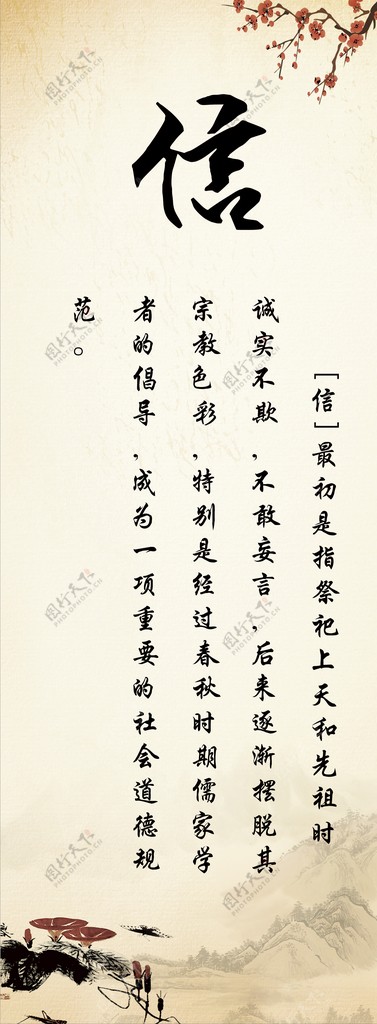 信
［信］最初是指祭祀上天和先祖时
诚实不欺，不敢妄言，后来逐渐摆脱其
宗教色彩，特别是经过春秋时期儒家学
者的倡导，成为一项重要的社会道德规
范。
图行天下
PHOTOPHOTO.CN